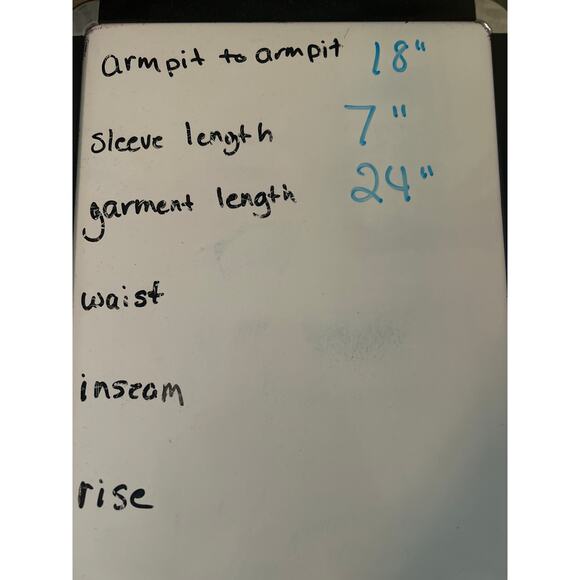 armpit to armpit 18"
sleeve length 7"
garment length 24"
waist
inseam
rise